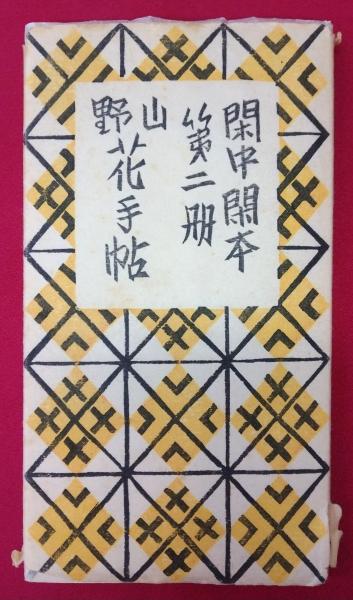 閑中閑本
第二冊
山野花手帖